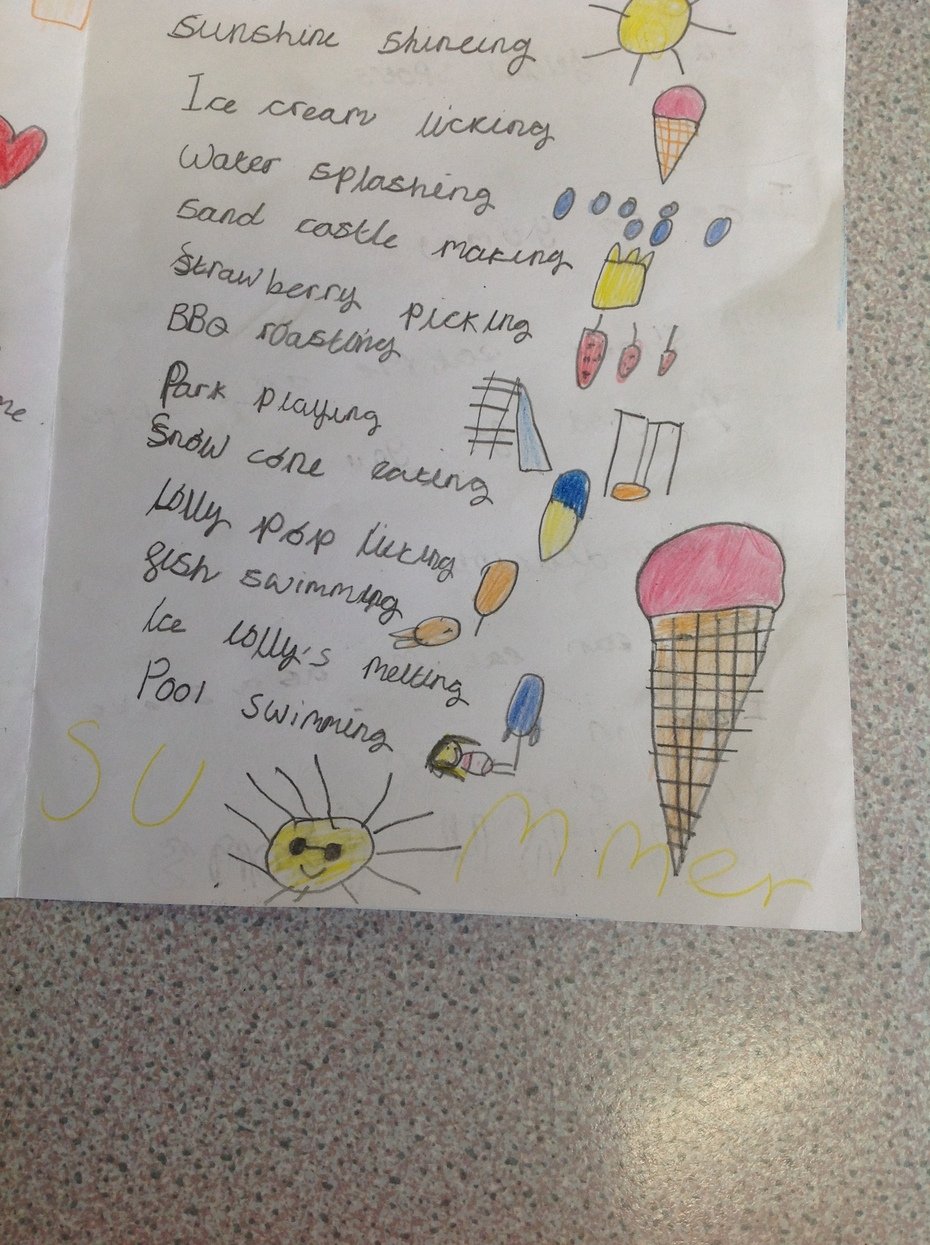 Sunshine shineing
Ice cream licking
Water splashing
Sand castle making
Strawberry picking
BBQ roasting
Park playing
Snow cone eating
Lolly pop licking
fish swimming
Ice lolly's melting
Pool swimming
SUmmer